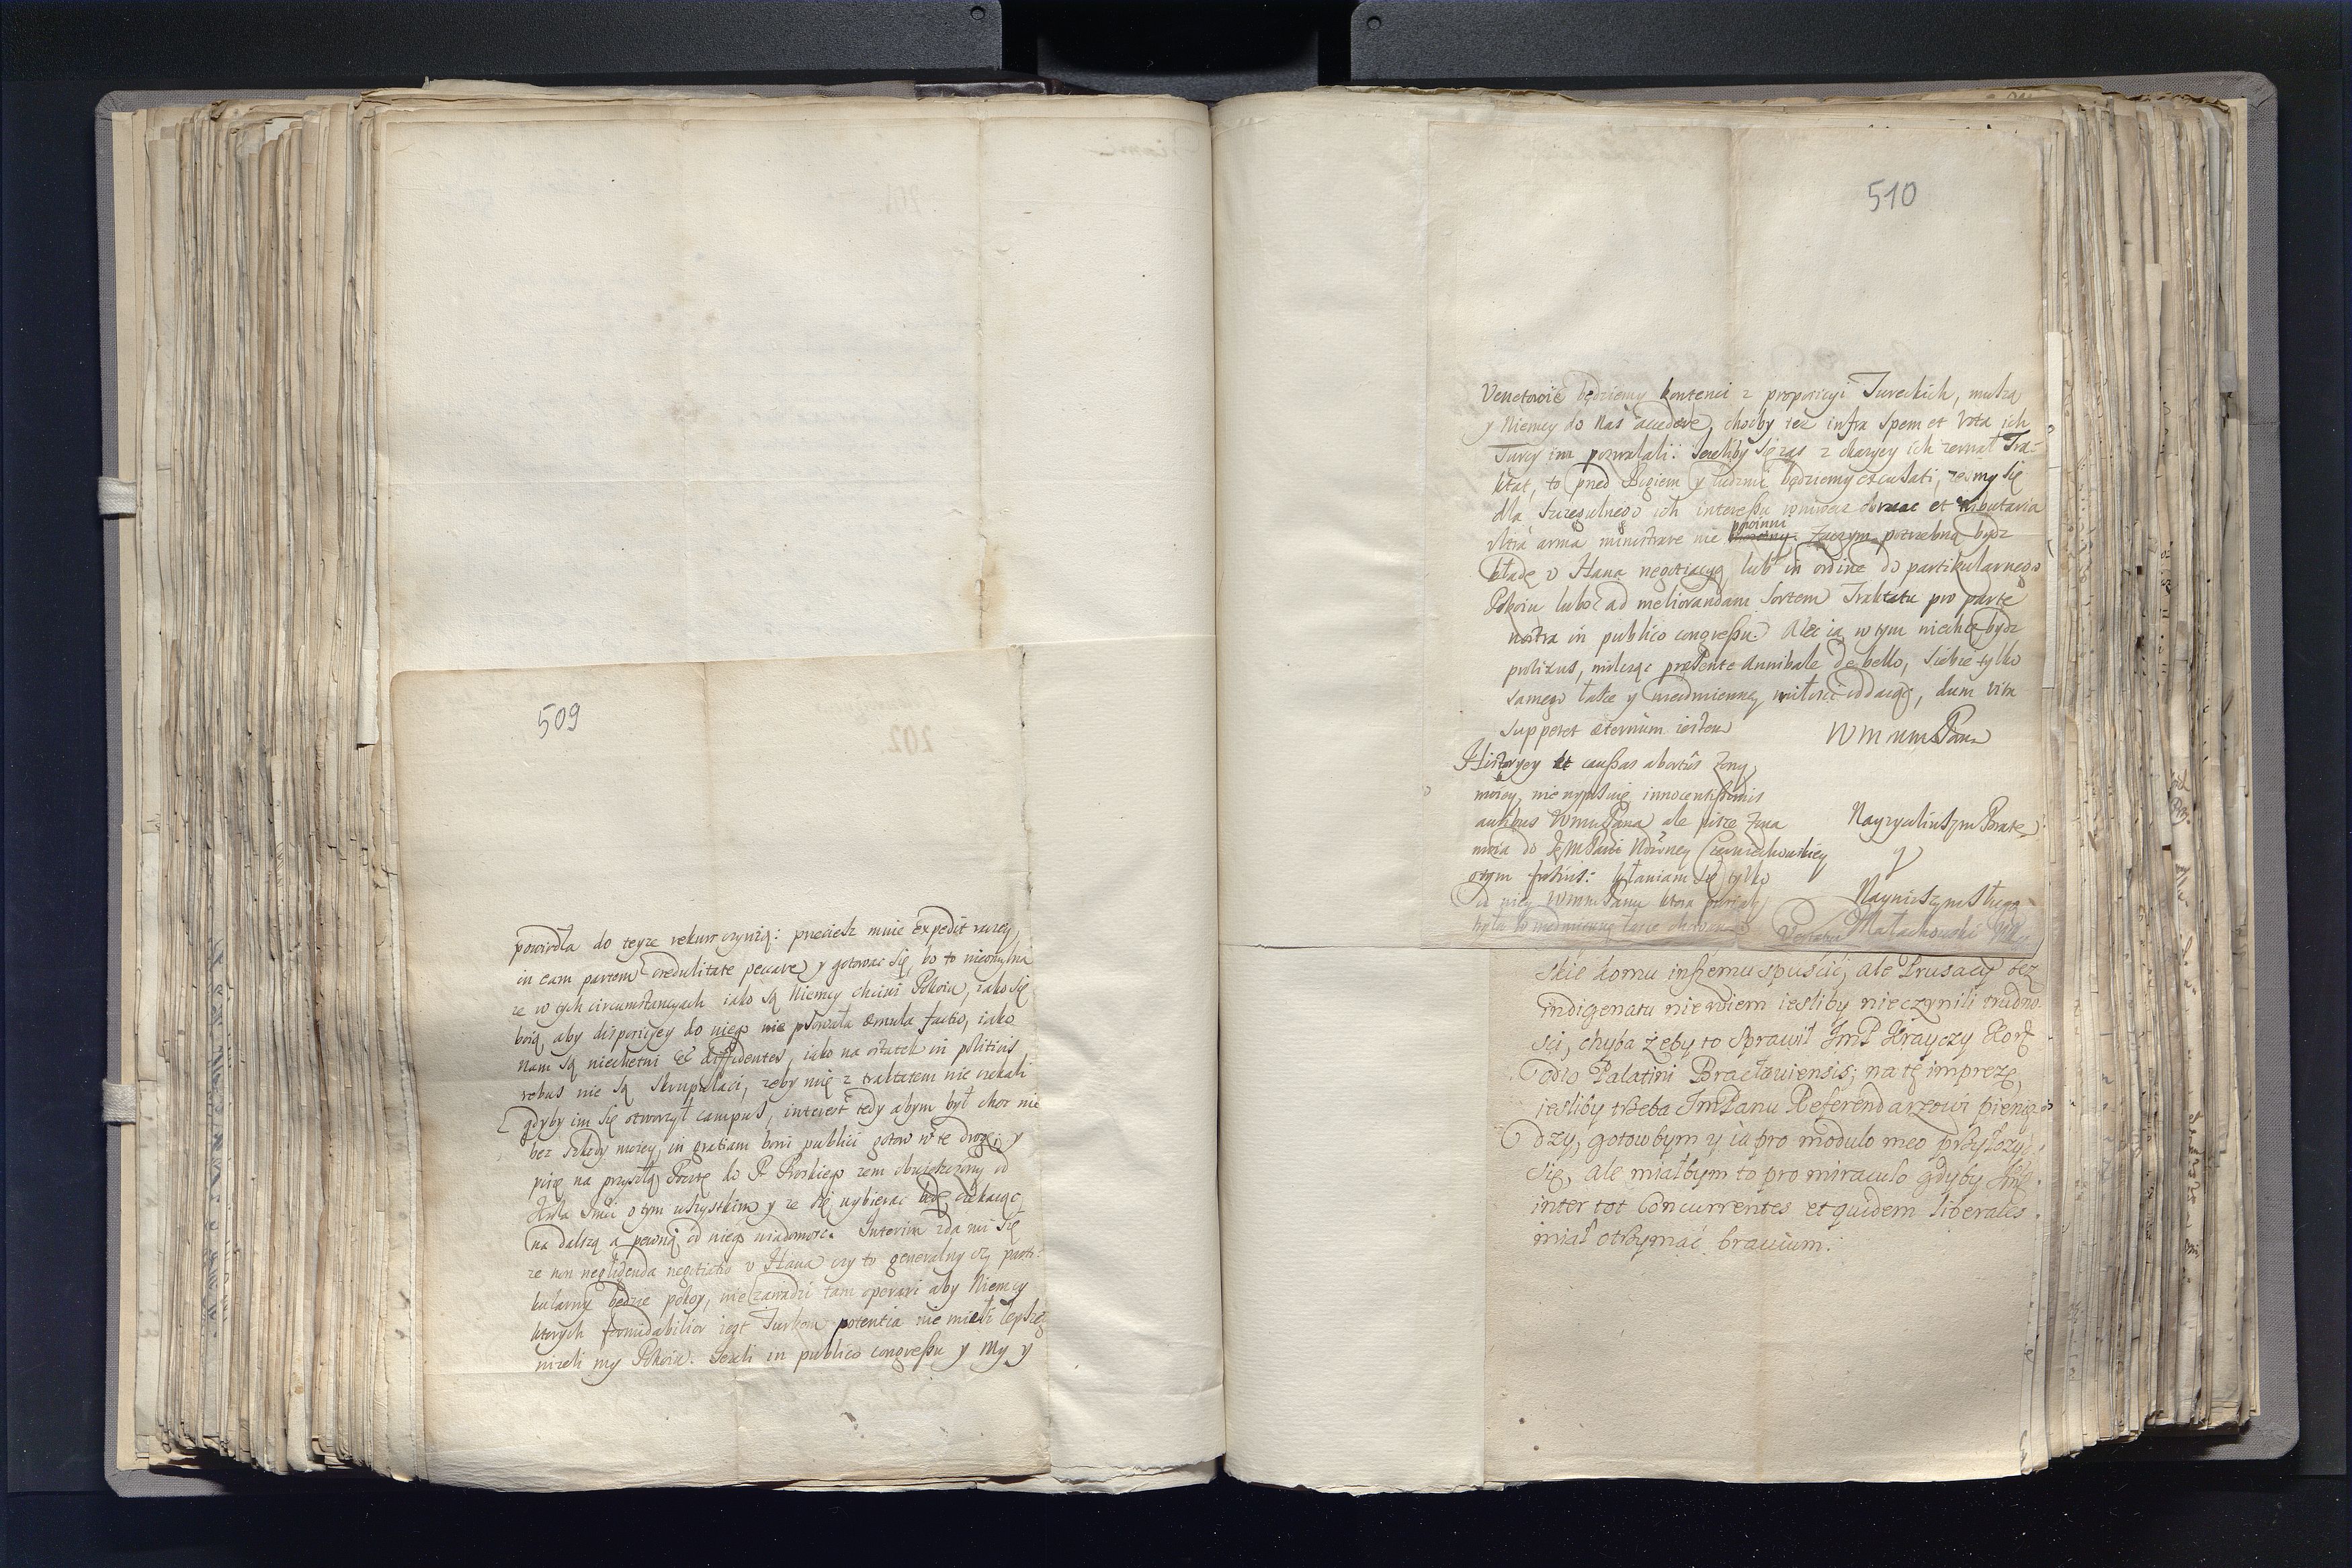 509
powiodła do teyze rekurr czynią: przeciesz mnie expedit raczey,
in eam partem credulitate peccare, y gotować się, bo to nieomylna
ze w tych circumstancyach iako są Niemcy chciwi Pokoiu, iako się
boią, aby disposicyey do niego nie psowała æmula factio, iako
Nam są niechetni & diffidentes, iako na ostatek in politicis
rebus nie są skrupulaci, zeby mię z traktatem nie czekali
gdyby im się otworzył campus, interest tedy abym był choc nie
bez szkody moiey, in gratiam boni publici gotow w te drogę, y
piszę na przyszłą Pocztę do P. Proskiego zem obwieszczony od
Krla Jmci o tym wszystkim y ze się wybierac będę czekaiąc
na dalszą a pewną od niego wiadomosc. Interim zda mi się
ze non negligenda negotiatio v Hana czy to generalny czy parti-
kularny będzie pokoy, nie zawadzi tam operari aby Niemcy
ktorych formidabilior iest Turkom potentia nie mieli lepszeg
nizeli my Pokoiu. Jezeli in publico congressu y My y
510
Venetowie będziemy kontenci z proposicyi Tureckich, muszą
y Niemcy do Nas accedere, choćby tez infra spem et vota ich
Turcy im pozwalali. Jezeliby się zas z okazyey ich zerwał Tra-
ktat, to przed Bogiem y ludzmi będziemy excusati, zesmy się
dla szczegulnego ich interessu wniwecz obracac et tributaria
vltra arma ministrare nie powinni. Zaczym potrzebną bydz
kładę v Hana negotiacyą, lub in ordine do partikularnego
Pokoiu lubo ad meliorandam sortem Traktatu pro parte
nostra in publico congressu. Ale ia w tym niechcę bydz
prolixus, milcząc præsente Annibale de bello, siebie tylko
samego łasce y nieodmienney miłosci oddaiąc, dum vita
suppetet æternum iestem
WmmmPana
Historyey et caussas abortûs Zony
moiey, nie wypisuię innocentissimis
auribus WmmPana ale pisze Zona
moia do JeyMPani
o tym fusius: kłaniam się tylko
od niey WmmPanu ktora
Nayzyczliwszym Bratem
y
Naynizszym sługą
Małachowski
skie komu inszemu spuścić, ale Prusacy bez
indigenatu niewiem iesliby nieczynili trudno-
sci, chyba żeby to sprawił JmP Krayczy Kor
odio Palatini Bracłauiensis; na tę imprezę,
iesliby trzeba JmPanu Referendarzowi pienię-
dzy, gotowbym y ia pro modulo meo przyłozyć
się, ale miałbym to pro miraculo gdyby
inter tot concurrentes et quidem liberales
miał otrzymać brauium.